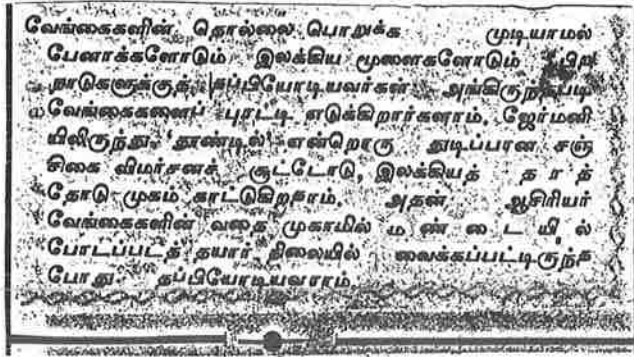 வேங்கைகளின் தொல்லை பொறுக்க முடியாமல்
பேனாக்களோடும் இலக்கிய மூளைகளோடும் பிற
நாடுகளுக்குத் தப்பியோடியவர்கள் அங்கிருந்தபடி
வேங்கைகளைப் புரட்டி எடுக்கிறார்களாம். ஜேர்மனி
யிலிருந்து 'தூண்டில்' என்றொரு துடிப்பான சஞ்
சிகை விமர்சனச் சூட்டோடு, இலக்கியத் தரத்
தோடு முகம் காட்டுகிறதாம். அதன் ஆசிரியர்
வேங்கைகளின் வதை முகாமில் மண்டையில்
போடப்படத் தயார் நிலையில் வைக்கப்பட்டிருந்த
போது தப்பியோடியவராம்.